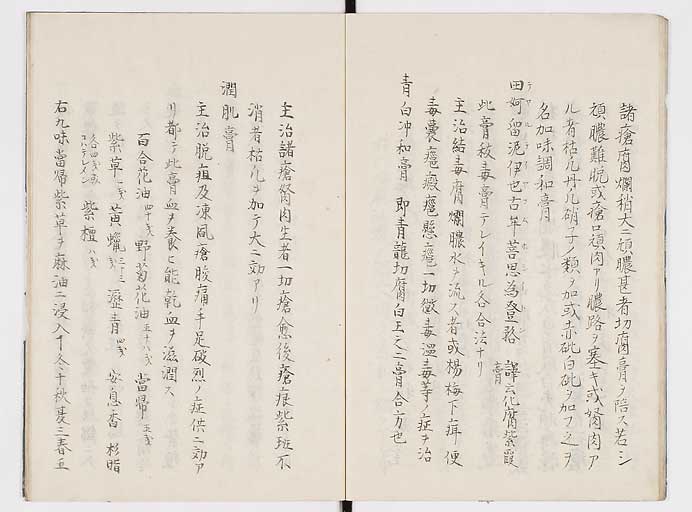 諸瘡腐爛稍大ニ頑膿甚者切腐膏ヲ陪ス若シ
頑膿難脱或瘡口頑肉アリ膿路ヲ塞キ或胬肉ア
ル者枯凡丹凡硝子ノ類ヲ加或赤砒白砒ヲ加フ之ヲ
名加味調和膏
田婀留泥伊也古 菩思為登 譯云化腐紫霞膏
此膏秡毒膏テレイキル各合法ナリ
主治結毒腐爛膿水ヲ流ス者或楊梅下疳便
毒嚢癰 癰懸癰一切黴毒温毒等ノ症ヲ治
青白冲和膏 即青龍切腐白上之二膏合方也
主治諸瘡胬肉生者一切瘡愈後瘡痕紫斑不
消者枯凡ヲ加テ大ニ効アリ
潤肌膏
主治脱疽及凍風瘡酸痛手足破烈ノ症供ニ効ア
リ都テ此膏血ヲ養ヒ能乾血ヲ滋潤ス
百合花油四十戔 野菊花油五十八戔 當帰五戔
紫草一戔 黄蠟三十三戔 瀝青四戔 安息香 杉脂
各四戔 紫檀八戔
右九味當帰紫草ヲ麻油ニ浸入スヿ冬十秋夏三春五